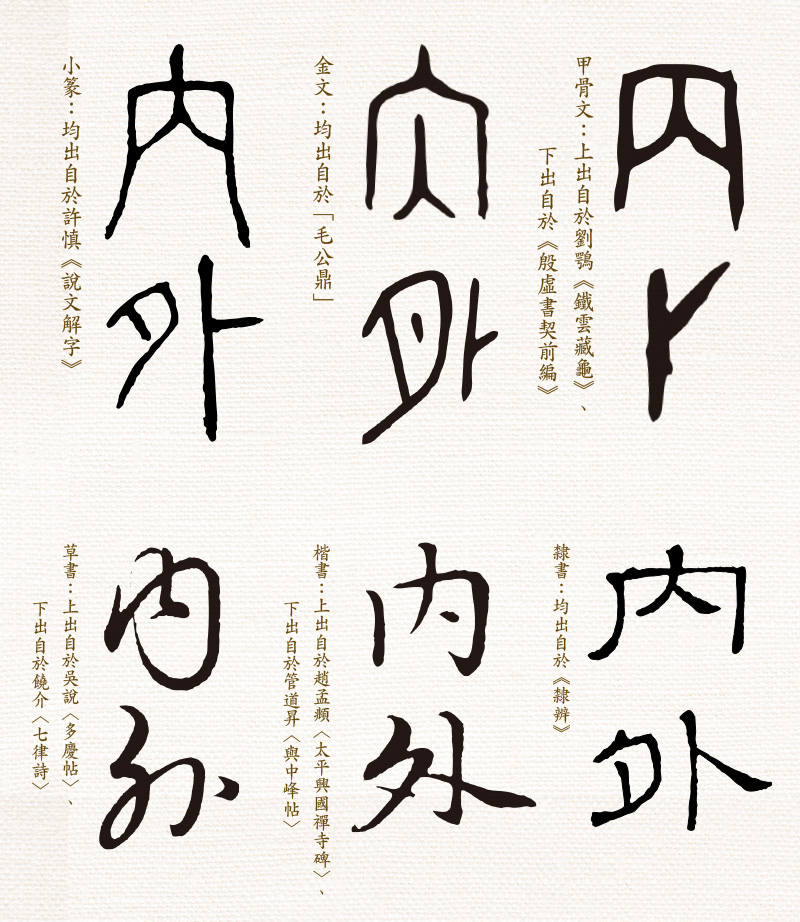 內
外
甲骨文：上出自於劉鶚《鐵雲藏龜》、
下出自於《殷虛書契前編》
內
外
金文：均出自於「毛公鼎」
內
外
小篆：均出自於許慎《說文解字》
內
外
隸書：均出自於《隸辨》
內
外
楷書：上出自於趙孟頫〈太平興國禪寺碑〉、
下出自於管道昇〈與中峰帖〉
內
外
草書：上出自於吳說〈多慶帖〉、
下出自於饒介〈七律詩〉